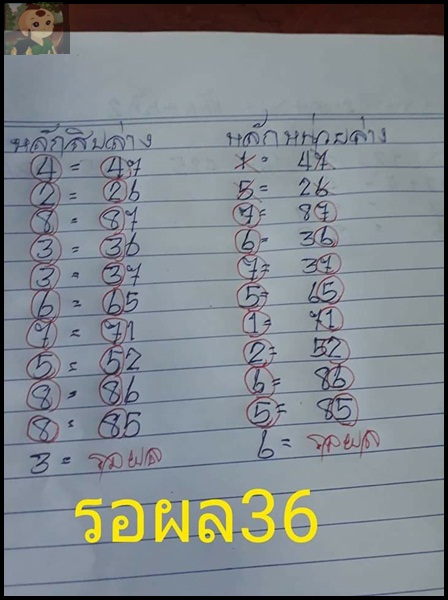 หลักสิบล่าง หลักหน่วยล่าง
4 = 47 x = 47
2 = 26 5 = 26
8 = 87 7 = 87
3 = 36 6 = 36
3 = 37 7 = 37
6 = 65 5 = 65
7 = 71 1 = 71
5 = 52 2 = 52
8 = 86 6 = 86
8 = 85 5 = 85
3 = รอผล 6 = รอผล
รอผล36